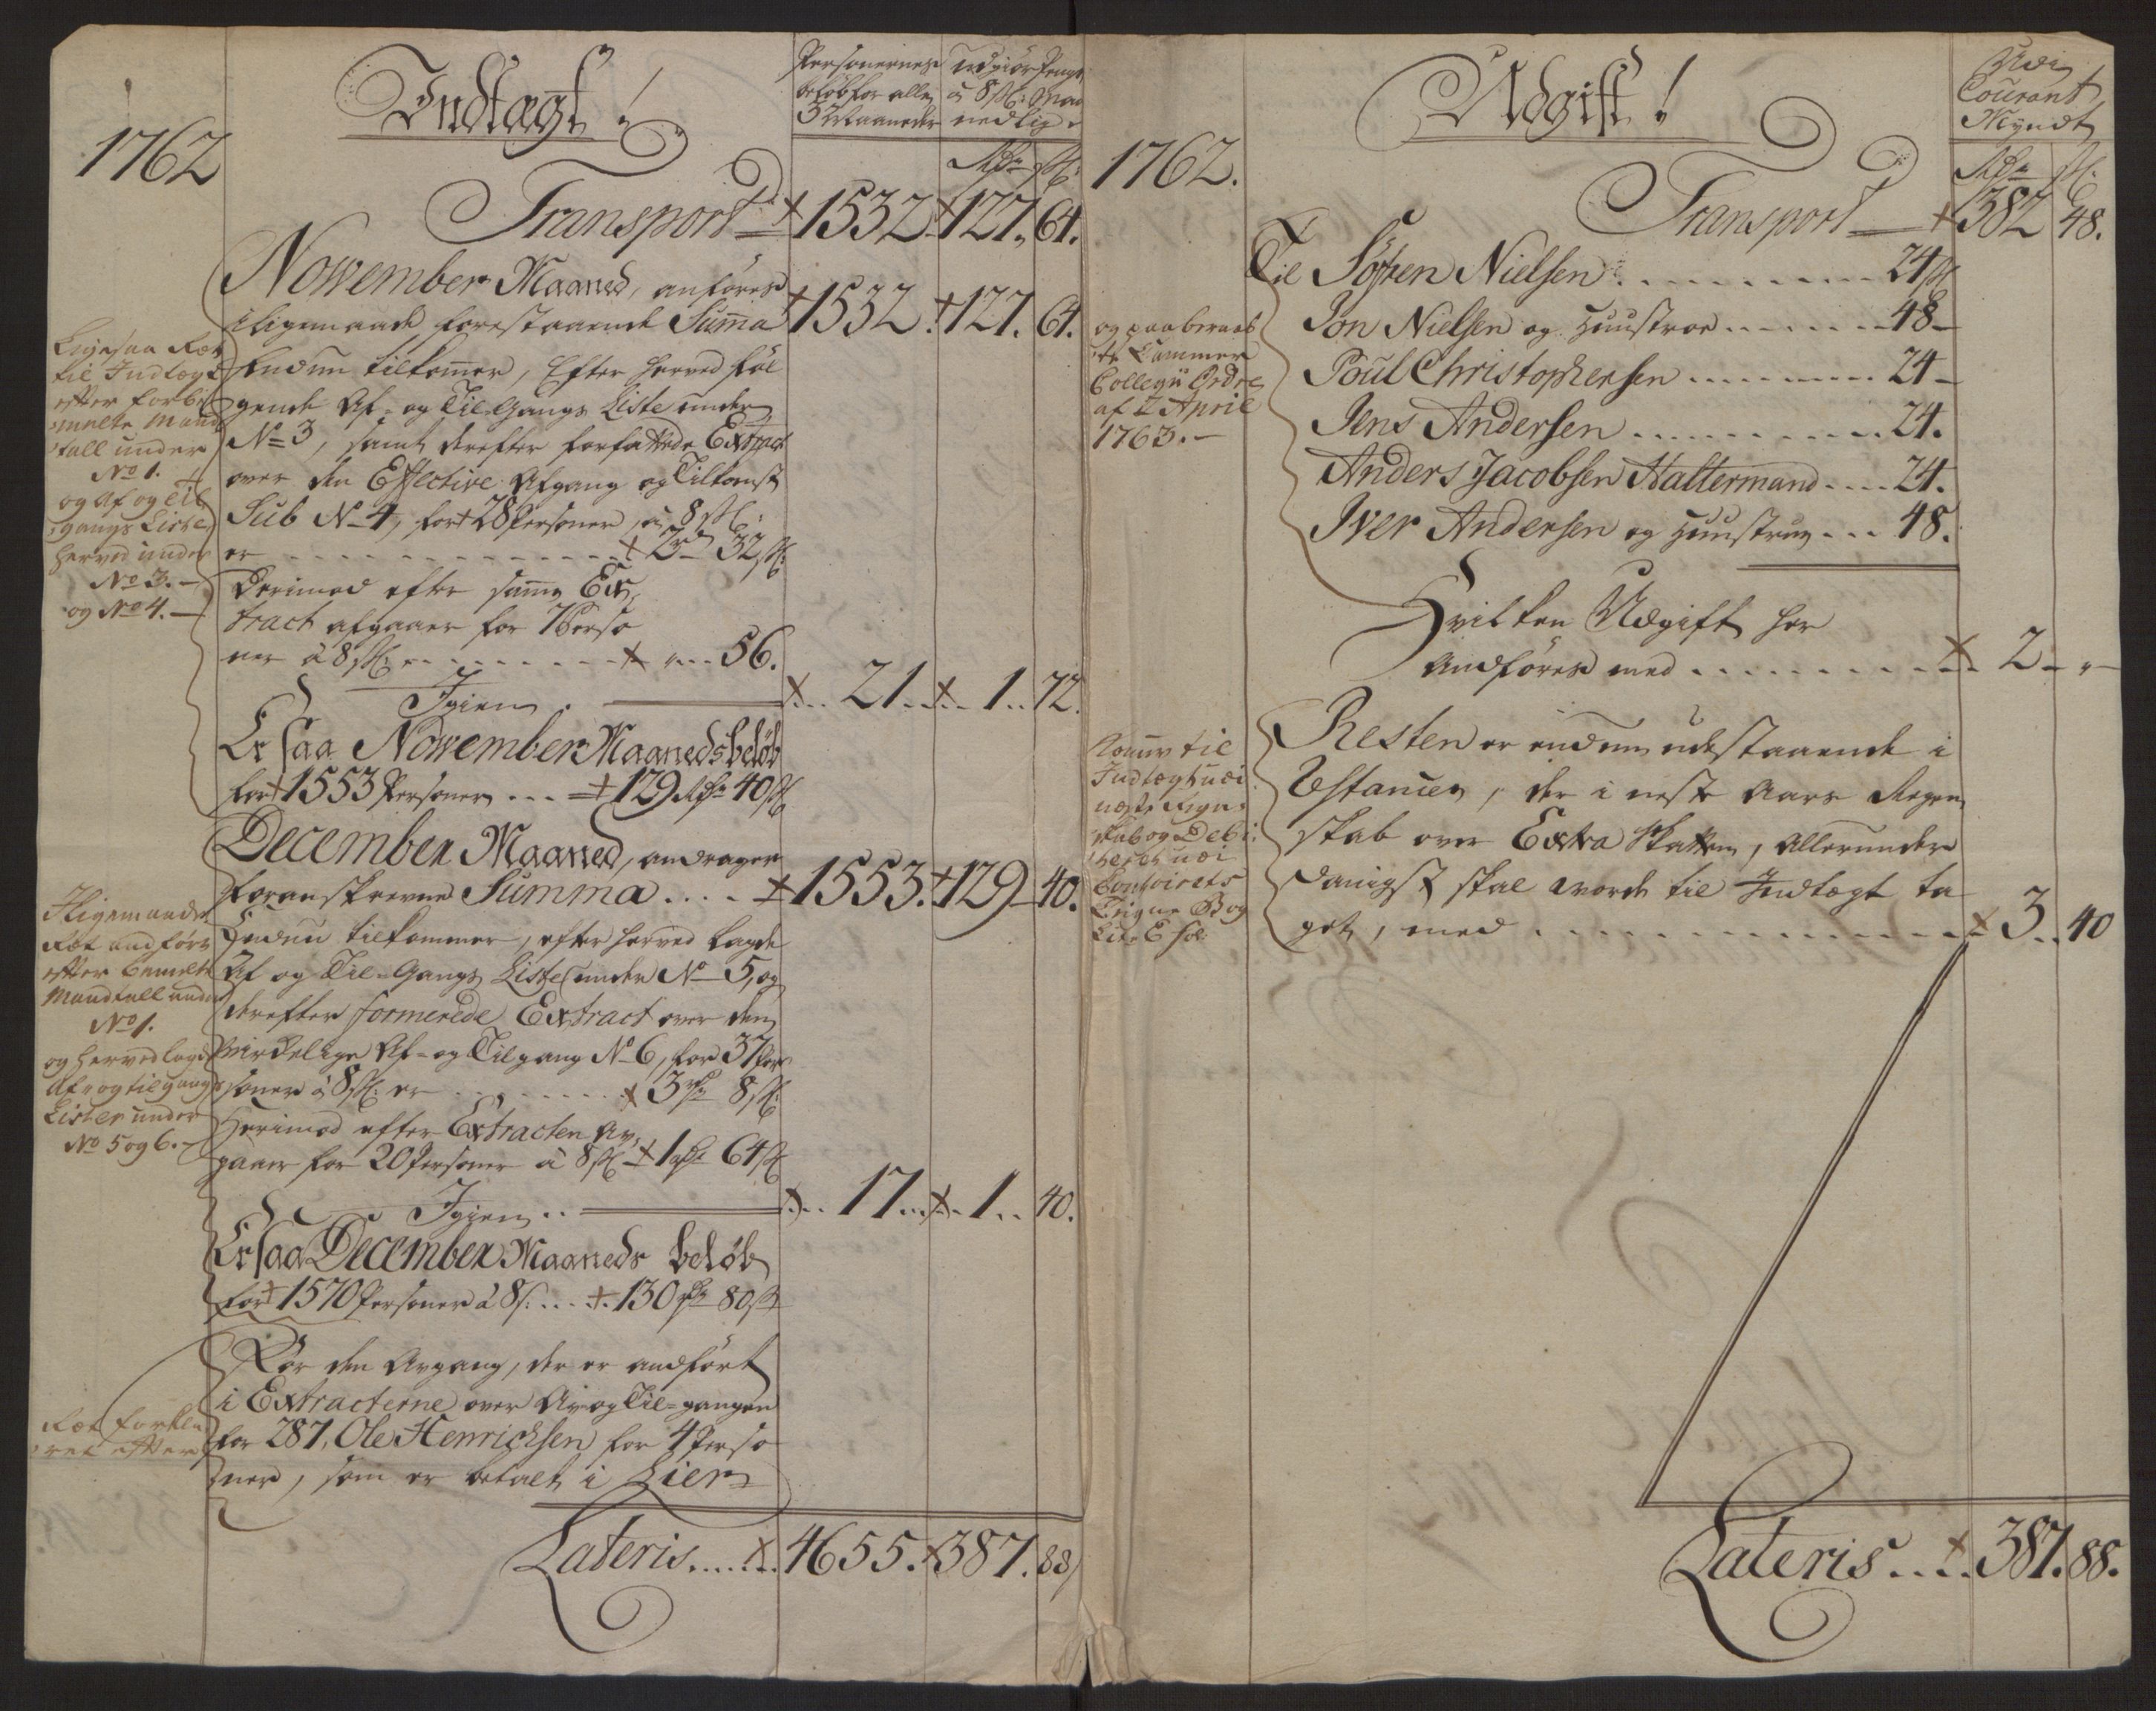 Indtægt!
Personernes
beløb for alle
3 Maaneder
Udgiør Penge
à 8 sk: Maa
nedlig
1762
Rdr sk:
Transport 1532 127. 64.
November Maaned, anføres
ligemaade forestaaende Suma 1532. 127. 64.
Endnu tilkomer, Efter herved føl
gende Af- og Til-Gangs Liste under
No 3, samt derefter forfattede Extract
over den Effective Afgang og Tilkomst
Sub No 4, for 28 Personer, à 8 sk:
er 2 rd 32 sk:
Derimod efter same Ex,
tract afgaaer for 7 Perso
ner à 8 sk: 56.
Igien. 21. 1. 72.
Er saa November Maaneds beløb
for 1553 Personer 129 Rdr 40 sk
December Maaned, andrager
foranskrevne Summa 1553. 129 40.
Endnu tilkommer, efter herved lagde
Af og Til-Gangs Liste under No 5, og
derefter formerede Extract over den
virkelige Af- og Tilgang No 6, for 37 Per
soner à 8 sk: er 3 rd 8 sk:
Herimod efter Extracten Av,
gaaer for 20 Personer à 8 sk 1 rd 64 sk
Igien 17 1 40.
Er saa December Maaneds beløb
for 1570 Personer à 8 s. 130 rd 80 sk
For den Avgang, der er andført
i Extracterne over Av og Til-gangen
for 287, Ole Henrichsen for 4 Perso
ner, som er betalt i Lier
Lateris 4655. 387. 88
Ligesaa Ræt
til Indtægt
efter forbe
melte Mand
tall under
No 1.
og Af og Til
gangs Liste
herved under
No 3.
og No 4.
Ligemaade
Ræt andført
efter bemelte
Mandtall under
No 1.
og herved lagde
Af og tilgangs
Lister under
No 5 og 6.
Ræt forkla
ret efter
Udgift!
Udi
Courant
Myndt
1762.
Rdr sk:
Transport 382 48.
Til Søfren Nielsen 24 sk
Jon Nielsen og Huustroe 48
Poul Christophersen 24
Jens Andersen 24.
Anders Jacobsen Haltermand 24.
Iver Andersen og Huustrue 48.
Hvilken Udgift her
Andføres med 2
Resten er endnu udestaaende i
Restancen, der i neste Aars Regen
skab over Extra Skatten, Allerunder
danigst skal worde til Indtægt ta
get, med 3 40
Lateris 387. 88.
og paaberaab
te Cammer
Collegii Ordre
af 2 April
1763.
Komer til
Indtægt udi
neste Regn
skab og Debi
teret udi
Contoirets
Bog